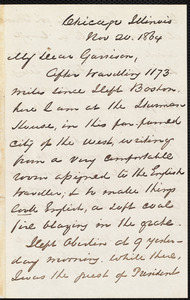 Chicago Illinois
Nov 20. 1864
My Dear Garrison,
After travelling 1173
miles since I left Boston.
here I am at the Sherman
House, in this far-famed
city of the West, writing
from a very comfortable
room assigned to the English
traveller; & to make things
look English, a soft coal
fire blazing in the grate.
I left Oberlin at 9 yester-
day morning. while there,
I was the guest of President